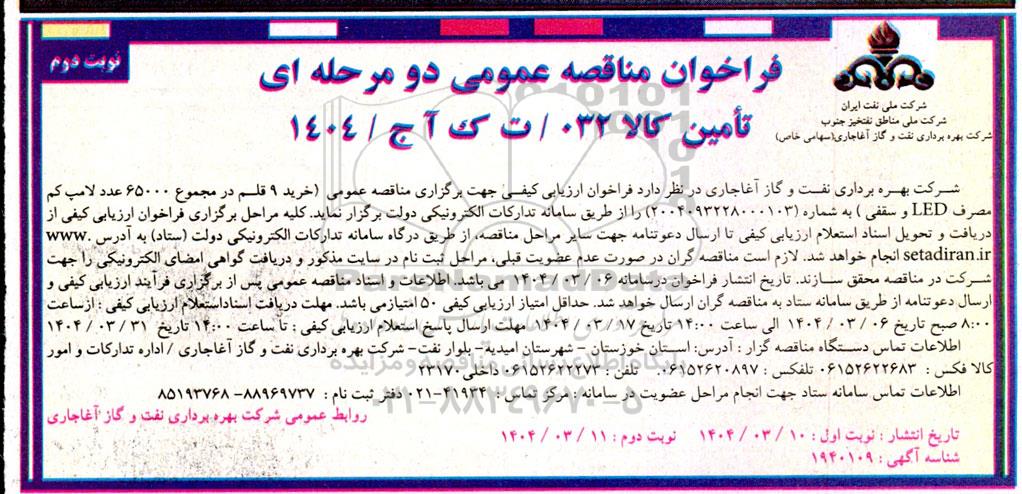 نوبت دوم
فراخوان مناقصه عمومی دو مرحله ای
تأمین کالا ۰۳۲ / ت ک آ ج / ۱۴۰۴
شرکت ملی نفت ایران
شرکت ملی مناطق نفتخیز جنوب
شرکت بهره برداری نفت و گاز آغاجاری(سهامی خاص)
شرکت بهره برداری نفت و گاز آغاجاری در نظر دارد فراخوان ارزیابی کیفی جهت برگزاری مناقصه عمومی (خرید ۹ قلم در مجموع ۶۵۰۰۰ عدد لامپ کم
مصرف LED و سقفی ) به شماره (۲۰۰۴۰۹۳۲۲۸۰۰۰۱۰۳) را از طریق سامانه تدارکات الکترونیکی دولت برگزار نماید. کلیه مراحل برگزاری فراخوان ارزیابی کیفی از
دریافت و تحویل اسناد استعلام ارزیابی کیفی تا ارسال دعوتنامه جهت سایر مراحل مناقصه، از طریق درگاه سامانه تدارکات الکترونیکی دولت (ستاد) به آدرس www.
setadiran.ir انجام خواهد شد. لازم است مناقصه گران در صورت عدم عضویت قبلی، مراحل ثبت نام در سایت مذکور و دریافت گواهی امضای الکترونیکی را جهت
شرکت در مناقصه محقق سازند. تاریخ انتشار فراخوان درسامانه ۰۶ / ۰۳ / ۱۴۰۴ می باشد. اطلاعات و اسناد مناقصه عمومی پس از برگزاری فرآیند ارزیابی کیفی و
ارسال دعوتنامه از طریق سامانه ستاد به مناقصه گران ارسال خواهد شد. حداقل امتیاز ارزیابی کیفی ۵۰ امتیازمی باشد. مهلت دریافت اسناداستعلام ارزیابی کیفی : ازساعت
۸:۰۰ صبح تاریخ ۰۶ / ۰۳ / ۱۴۰۴ الی ساعت ۱۴:۰۰ تاریخ ۱۷ / ۰۳ / ۱۴۰۴ مهلت ارسال پاسخ استعلام ارزیابی کیفی : تا ساعت ۱۴:۰۰ تاریخ ۳۱ / ۰۳ / ۱۴۰۴
اطلاعات تماس دستگاه مناقصه گزار : آدرس: استان خوزستان – شهرستان امیدیه– بلوار نفت– شرکت بهره برداری نفت و گاز آغاجاری / اداره تدارکات و امور
کالا فکس : ۰۶۱۵۲۶۲۲۶۸۳ تلفکس : ۰۶۱۵۲۶۲۰۸۹۷ تلفن : ۰۶۱۵۲۶۲۲۲۷۳ داخلی ۲۳۱۷۰
اطلاعات تماس سامانه ستاد جهت انجام مراحل عضویت در سامانه : مرکز تماس : ۴۱۹۳۴-۰۲۱ دفتر ثبت نام : ۸۸۹۶۹۷۳۷- ۸۵۱۹۳۷۶۸
روابط عمومی شرکت بهره برداری نفت و گاز آغاجاری
تاریخ انتشار : نوبت اول : ۱۰ / ۰۳ / ۱۴۰۴ نوبت دوم : ۱۱ / ۰۳ / ۱۴۰۴
شناسه آگهی : ۱۹۴۰۱۰۹
پایگاه اطلاع رسانی مناقصه و مزایده
۰۲۱-۸۸۳۴۹۶۷۰-۵